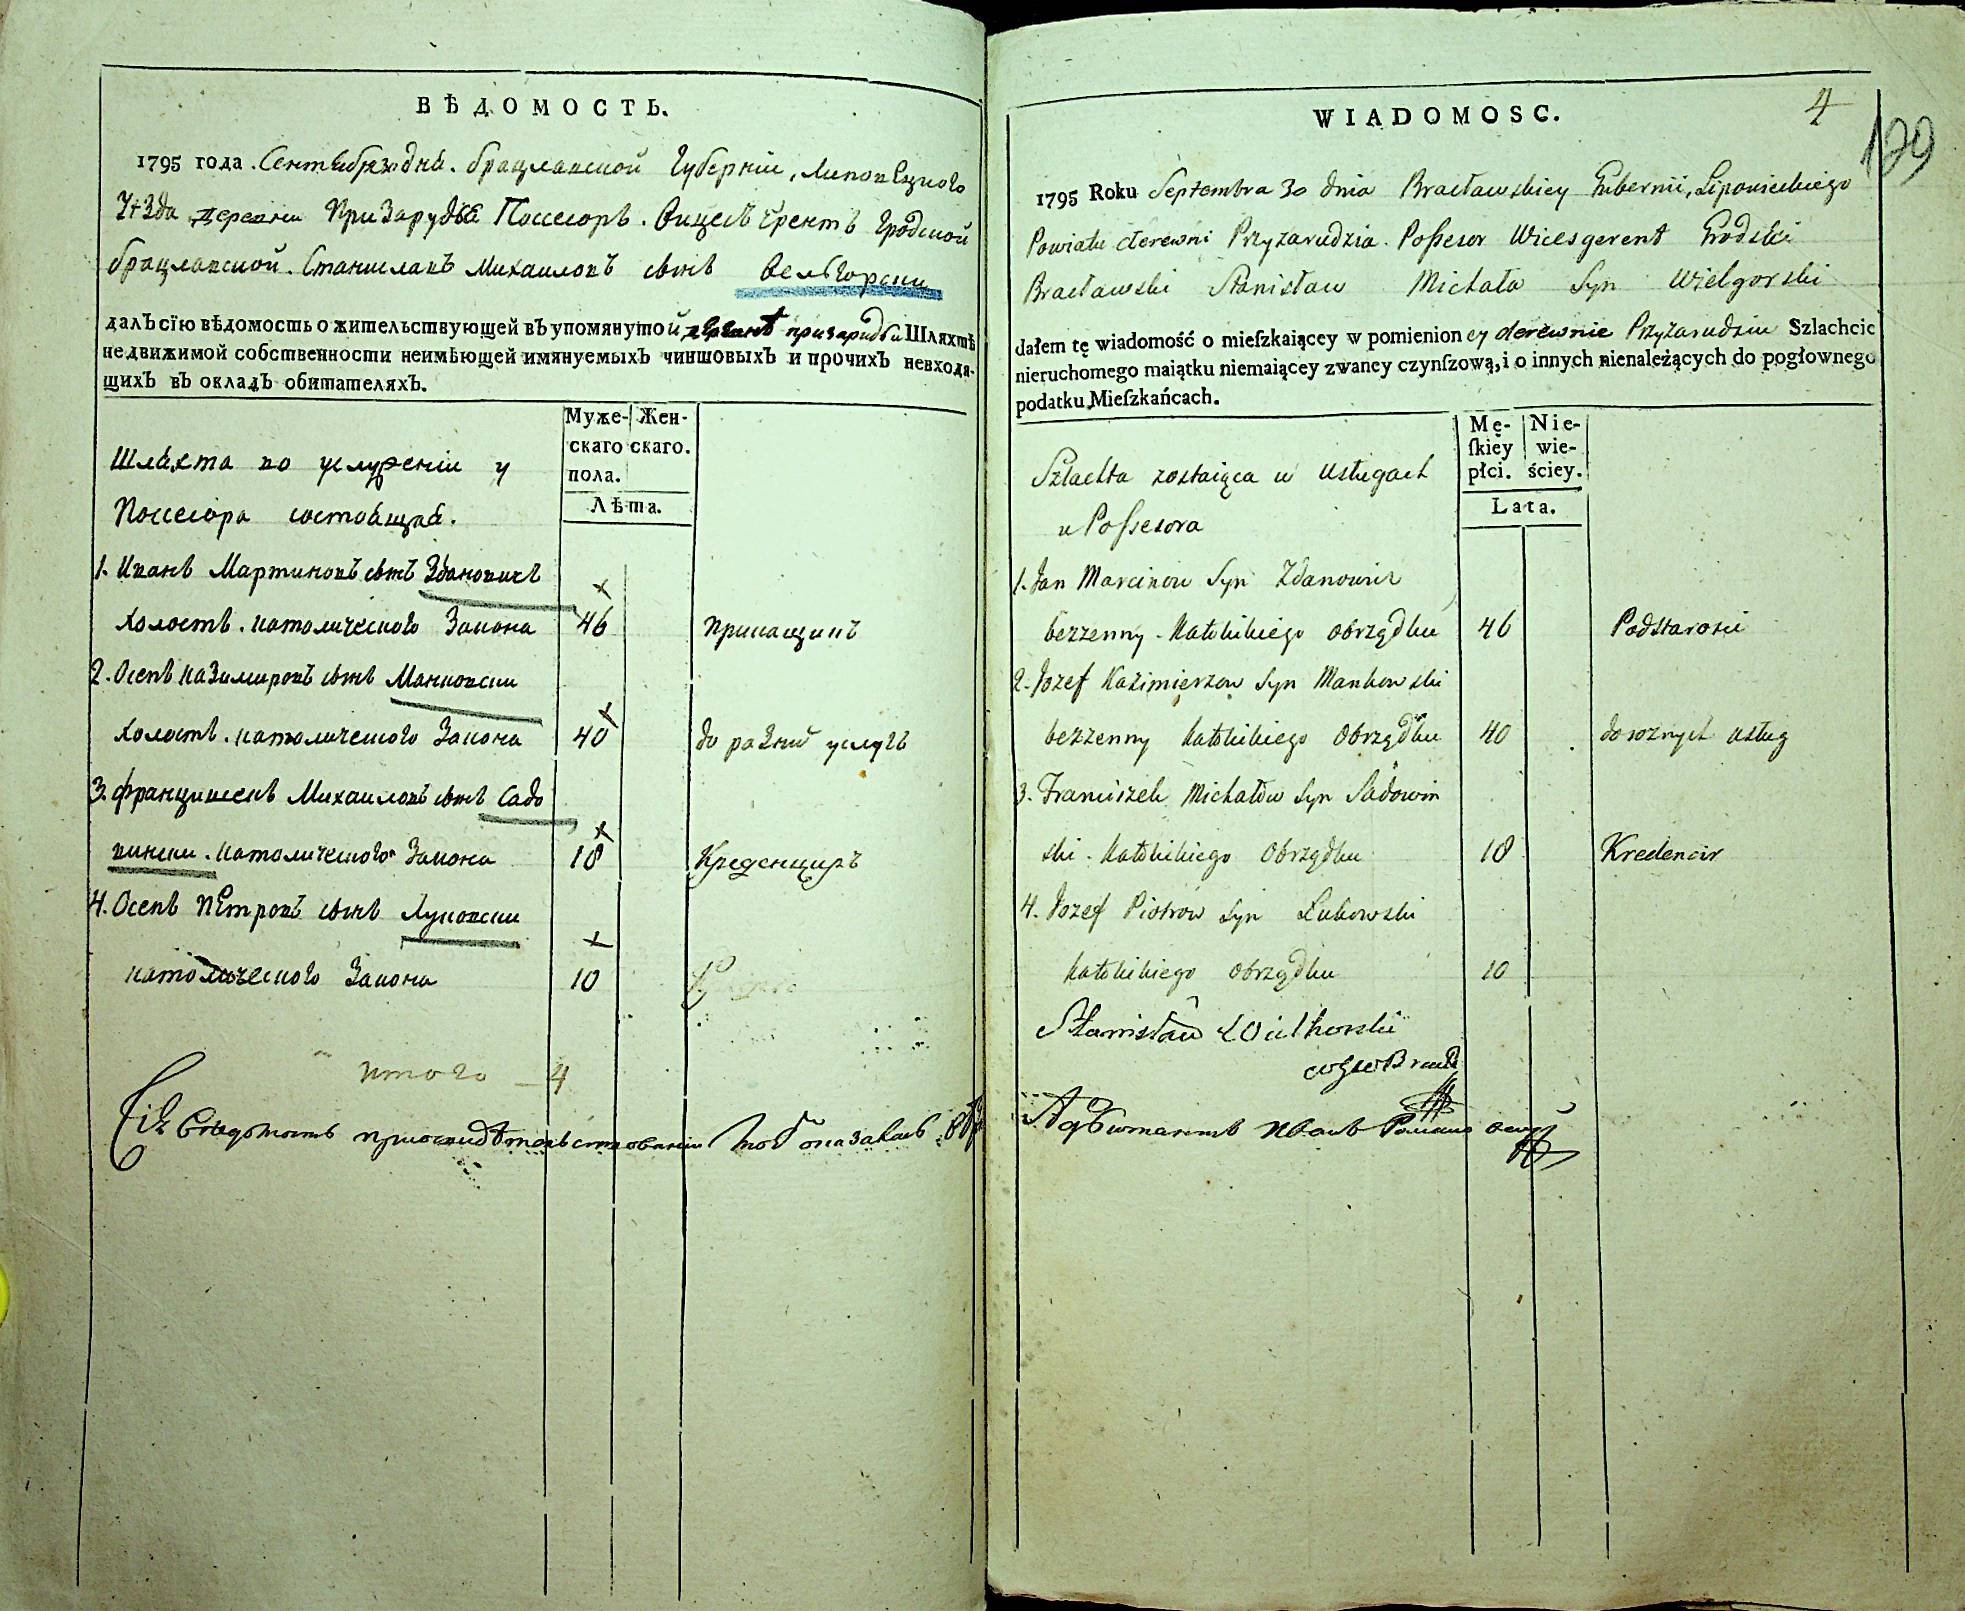 ВѢДОМОСТЬ.
1795 года. Сентебря 30 дня. брацлавской губернiи, Липовецкого
Уѣзда деревни Призарудья Поссесоръ. Вицесгерентъ гродской
брацлавской. Станиславъ Михаиловъ сынъ Вельгорски
далъ сїю вѣдомость о жительствующей въ упомянутой деревнѣ призарудьи Шляхтѣ
недвижимой собственности неимѣющей имянуемыхъ чиншовыхъ и прочихъ невходя-
щихъ въ окладъ обитателяхъ.
Муже- Жен-
скаго скаго.
пола.
Лѣта.
Шляхта во услуженiи у
Поссесора состоящая.
1. Иванъ Мартиновъ сынъ Здановичъ
холостъ. католического закона 46 прикащикъ
2. Осепъ казимировъ сынъ Манковски
холостъ. католического закона 40 до разний услугъ
3. францишекъ Михаиловъ сынъ Садо
вински. католического закона 18 Креденциръ
4. Осепъ Петровъ сынъ Луковски
католического закона 10
итого 4
WIADOMOSC.
4
129
1795 Roku Septembra 30 dnia Bracławskiey Gubernii, Lipowieckiego
Powiatu derewni Przyzarudzia. Possesor Wicesgerent Grodski
Bracławski Stanisław Michała Syn Wielgorski
dałem tę wiadomość o mieſzkaiącey w pomienioney derewnie Przyzarudziu Szlachcie
nieruchomego maiątku niemaiącey zwaney czynſzową, i o innych nienależących do pogłownego
podatku Mieſzkańcach.
Mę- Nie-
ſkiéy wie-
płci. ściey.
Lata.
Szlachta zostaiąca w usługach
u Possesora
1. Jan Marcinow Syn Zdanowicz
bezzenny. Katolickiego obrządku 46 Podstarosci
2. Jozef Kazimierzow Syn Mankowski
bezzenny katolickiego Obrządku 40 do roznych usług
3. Franciszek Michałow Syn Sadowin
ski. Katolickiego Obrządku 18 Kredencir
4. Jozef Piotrow Syn Lukowski
katolickiego obrządku 10
Stanisław Wielhorski